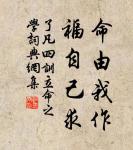 命由我作
福自己求
了凡四訓立命之
學詞典網集